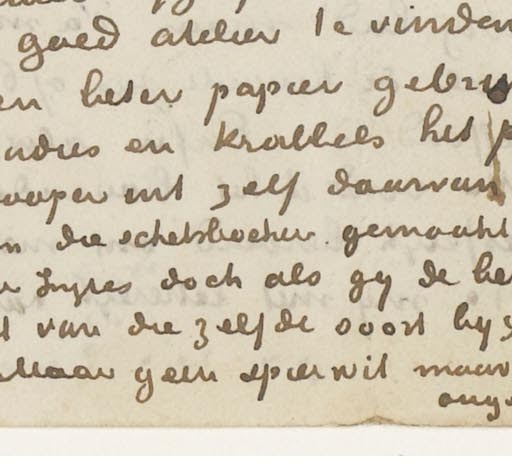 goed atelier te vinden
en beter papier gebru
udies en krabbels het p
ooper uit zelf daarvan
n die schetsboeken gemaakt
Ingres doch als gy de be
t van die zelfde soort by
Maar geen spierwit maar
ong